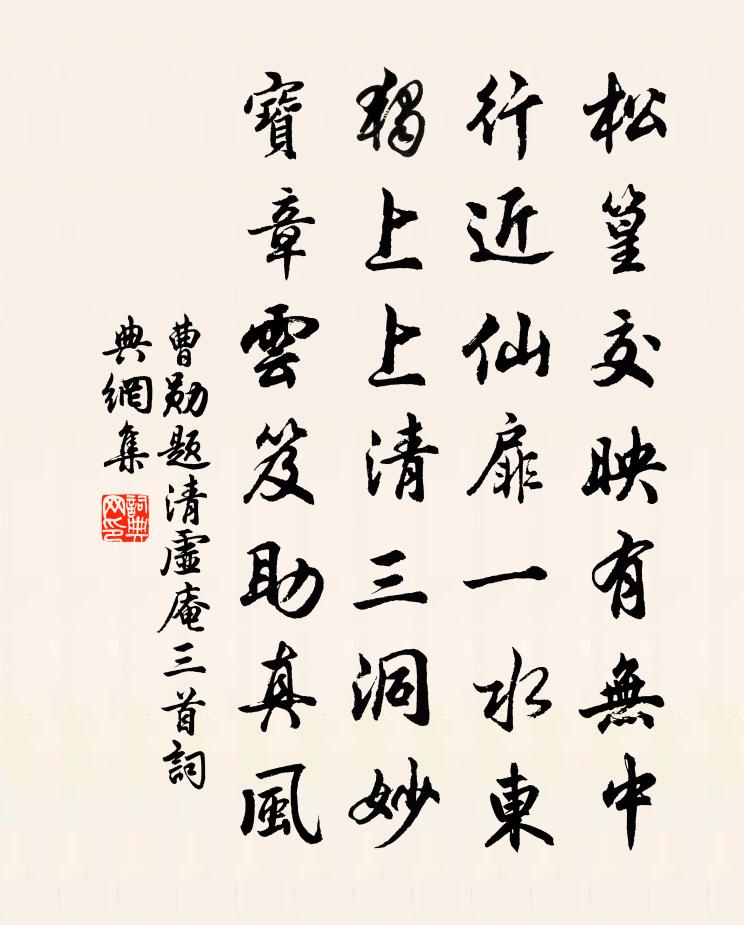 松篁交映有無中
行近仙扉一水東
獨上上清三洞妙
寶章雲笈助真風
曹勛題清虛庵三首詞
典網集
詞典網印